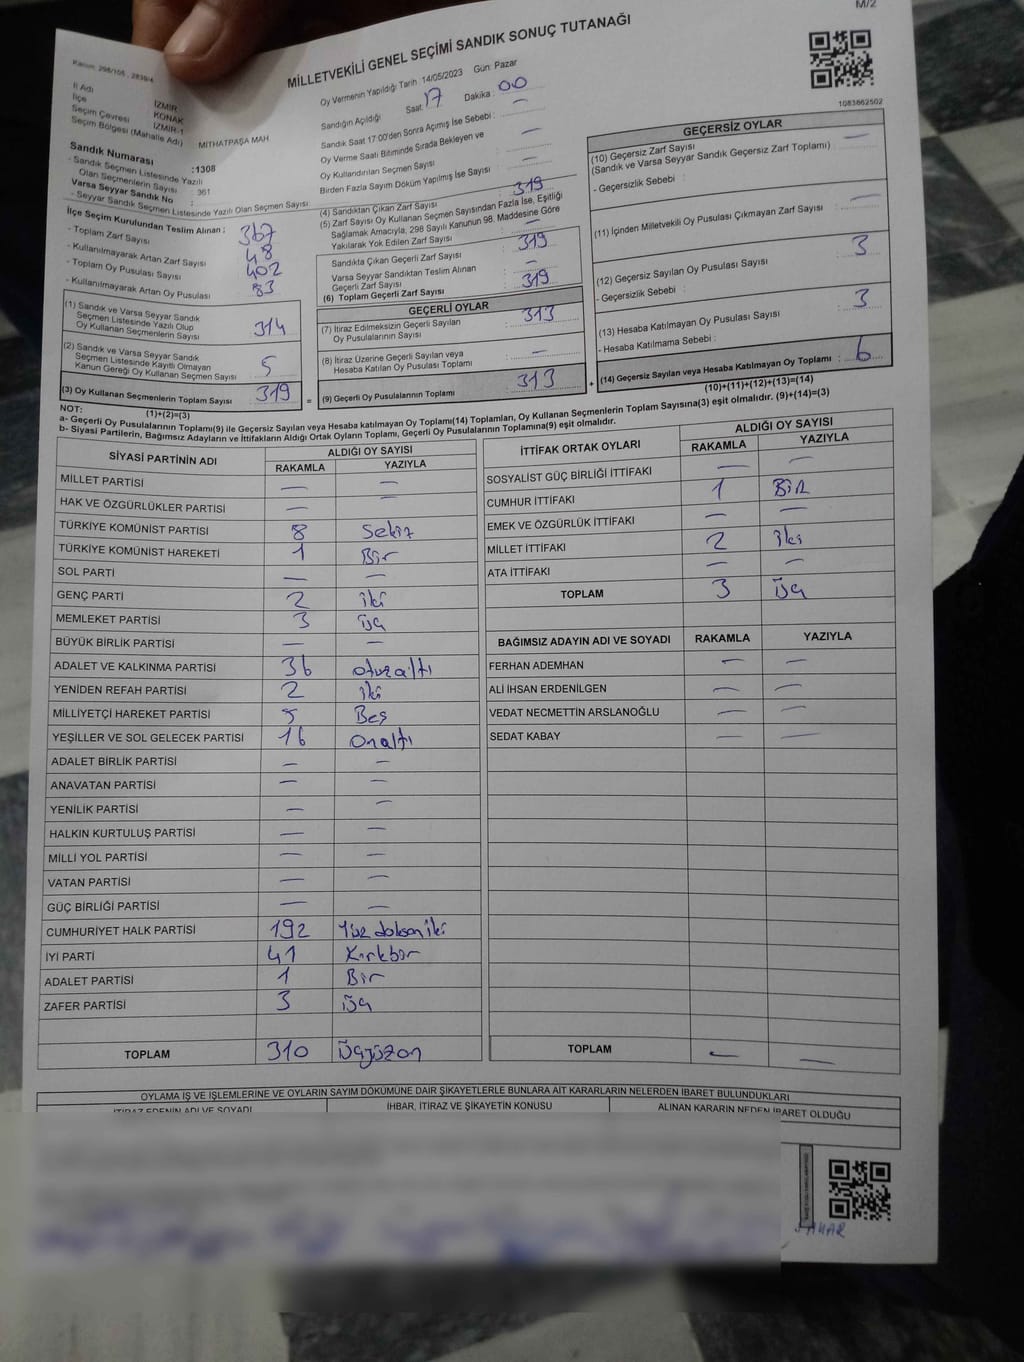 M/2
MİLLETVEKİLİ GENEL SEÇİMİ SANDIK SONUÇ TUTANAĞI
Kanun: 298/105 , 2839/4
1083862502
İl Adı İZMİR
İlçe KONAK
Seçim Çevresi İZMİR-1
Seçim Bölgesi (Mahalle Adı) MİTHATPAŞA MAH
Sandık Numarası :1308
- Sandık Seçmen Listesinde Yazılı
Olan Seçmenlerin Sayısı : 361
Varsa Seyyar Sandık No :
- Seyyar Sandık Seçmen Listesinde Yazılı Olan Seçmen Sayısı:
Oy Vermenin Yapıldığı Tarih :14/05/2023 Gün: Pazar
Sandığın Açıldığı Saat: 17 Dakika : 00
Sandık Saat 17:00'den Sonra Açımış İse Sebebi : —
Oy Verme Saati Bitiminde Sırada Bekleyen ve
Oy Kullandırılan Seçmen Sayısı : —
Birden Fazla Sayım Döküm Yapılmış İse Sayısı : —
İlçe Seçim Kurulundan Teslim Alınan :
- Toplam Zarf Sayısı : 367
- Kullanılmayarak Artan Zarf Sayısı : 48
- Toplam Oy Pusulası Sayısı : 402
- Kullanılmayarak Artan Oy Pusulası : 83
(1) Sandık ve Varsa Seyyar Sandık
Seçmen Listesinde Yazılı Olup
Oy Kullanan Seçmenlerin Sayısı : 314
(2) Sandık ve Varsa Seyyar Sandık
Seçmen Listesinde Kayıtlı Olmayan
Kanun Gereği Oy Kullanan Seçmen Sayısı : 5
(3) Oy Kullanan Seçmenlerin Toplam Sayısı : 319
(1)+(2)=(3)
(4) Sandıktan Çıkan Zarf Sayısı : 319
(5) Zarf Sayısı Oy Kullanan Seçmen Sayısından Fazla İse, Eşitliği
Sağlamak Amacıyla, 298 Sayılı Kanunun 98. Maddesine Göre
Yakılarak Yok Edilen Zarf Sayısı : —
Sandıkta Çıkan Geçerli Zarf Sayısı : 319
Varsa Seyyar Sandıktan Teslim Alınan
Geçerli Zarf Sayısı : —
(6) Toplam Geçerli Zarf Sayısı : 319
GEÇERLİ OYLAR
(7) İtiraz Edilmeksizin Geçerli Sayılan
Oy Pusulalarının Sayısı : 313
(8) İtiraz Üzerine Geçerli Sayılan veya
Hesaba Katılan Oy Pusulası Toplamı : —
= (9) Geçerli Oy Pusulalarının Toplamı : 313 +
GEÇERSİZ OYLAR
(10) Geçersiz Zarf Sayısı : —
(Sandık ve Varsa Seyyar Sandık Geçersiz Zarf Toplamı)
- Geçersizlik Sebebi :
(11) İçinden Milletvekili Oy Pusulası Çıkmayan Zarf Sayısı : —
(12) Geçersiz Sayılan Oy Pusulası Sayısı : 3
- Geçersizlik Sebebi :
(13) Hesaba Katılmayan Oy Pusulası Sayısı : 3
- Hesaba Katılmama Sebebi :
(14) Geçersiz Sayılan veya Hesaba Katılmayan Oy Toplamı : 6
(10)+(11)+(12)+(13)=(14)
NOT:
a- Geçerli Oy Pusulalarının Toplamı(9) ile Geçersiz Sayılan veya Hesaba katılmayan Oy Toplamı(14) Toplamları, Oy Kullanan Seçmenlerin Toplam Sayısına(3) eşit olmalıdır. (9)+(14)=(3)
b- Siyasi Partilerin, Bağımsız Adayların ve İttifakların Aldığı Ortak Oyların Toplamı, Geçerli Oy Pusulalarının Toplamına(9) eşit olmalıdır.
SİYASİ PARTİNİN ADI ALDIĞI OY SAYISI
RAKAMLA YAZIYLA
MİLLET PARTİSİ — —
HAK VE ÖZGÜRLÜKLER PARTİSİ — —
TÜRKİYE KOMÜNİST PARTİSİ 8 Sekiz
TÜRKİYE KOMÜNİST HAREKETİ 1 Bir
SOL PARTİ — —
GENÇ PARTİ 2 iki
MEMLEKET PARTİSİ 3 Üç
BÜYÜK BİRLİK PARTİSİ — —
ADALET VE KALKINMA PARTİSİ 36 otuzaltı
YENİDEN REFAH PARTİSİ 2 iki
MİLLİYETÇİ HAREKET PARTİSİ 5 Beş
YEŞİLLER VE SOL GELECEK PARTİSİ 16 Onaltı
ADALET BİRLİK PARTİSİ — —
ANAVATAN PARTİSİ — —
YENİLİK PARTİSİ — —
HALKIN KURTULUŞ PARTİSİ — —
MİLLİ YOL PARTİSİ — —
VATAN PARTİSİ — —
GÜÇ BİRLİĞİ PARTİSİ — —
CUMHURİYET HALK PARTİSİ 192 Yüzdoksaniki
İYİ PARTİ 41 Kırkbir
ADALET PARTİSİ 1 Bir
ZAFER PARTİSİ 3 Üç
TOPLAM 310 Üçyüzon
İTTİFAK ORTAK OYLARI ALDIĞI OY SAYISI
RAKAMLA YAZIYLA
SOSYALİST GÜÇ BİRLİĞİ İTTİFAKI — —
CUMHUR İTTİFAKI 1 BİR
EMEK VE ÖZGÜRLÜK İTTİFAKI — —
MİLLET İTTİFAKI 2 iki
ATA İTTİFAKI — —
TOPLAM 3 Üç
BAĞIMSIZ ADAYIN ADI VE SOYADI RAKAMLA YAZIYLA
FERHAN ADEMHAN — —
ALİ İHSAN ERDENİLGEN — —
VEDAT NECMETTİN ARSLANOĞLU — —
SEDAT KABAY — —
TOPLAM — —
OYLAMA İŞ VE İŞLEMLERİNE VE OYLARIN SAYIM DÖKÜMÜNE DAİR ŞİKAYETLERLE BUNLARA AİT KARARLARIN NELERDEN İBARET BULUNDUKLARI
İTİRAZ EDENİN ADI VE SOYADI İHBAR, İTİRAZ VE ŞİKAYETİN KONUSU ALINAN KARARIN NEDEN İBARET OLDUĞU